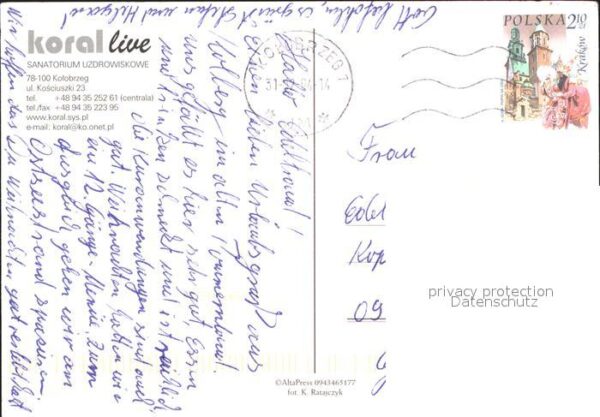 koral live
SANATORIUM UZDROWISKOWE
78-100 Kołobrzeg
ul. Kościuszki 23
tel. +48 94 35 252 61 (centrala)
tel./fax +48 94 35 223 95
www.koral.sys.pl
e-mail: koral@ko.onet.pl
POLSKA 2,10 ZŁ
Kraków
31
14
Hallo Edeltraud!
Einen lieben Urlaubsgruß aus
Kolberg im alten Pommerland.
Uns gefällt es hier sehr gut, Essen
und trinken schmeckt und ist reichlich
die Kuranwendungen sind auch
gut. Weihnachten hatten wir
ein 12 Gänge-Menü. Zum
Ausgleich gehen wir am
Ostseestrand spazieren.
Wir hoffen das Du Weihnachten gut verlebt hast
Gott befohlen es grüßt Stefan und Helgard
Frau
Edel
Kop
09
privacy protection
Datenschutz
©AltaPress 0943465177
fot. K. Ratajczyk